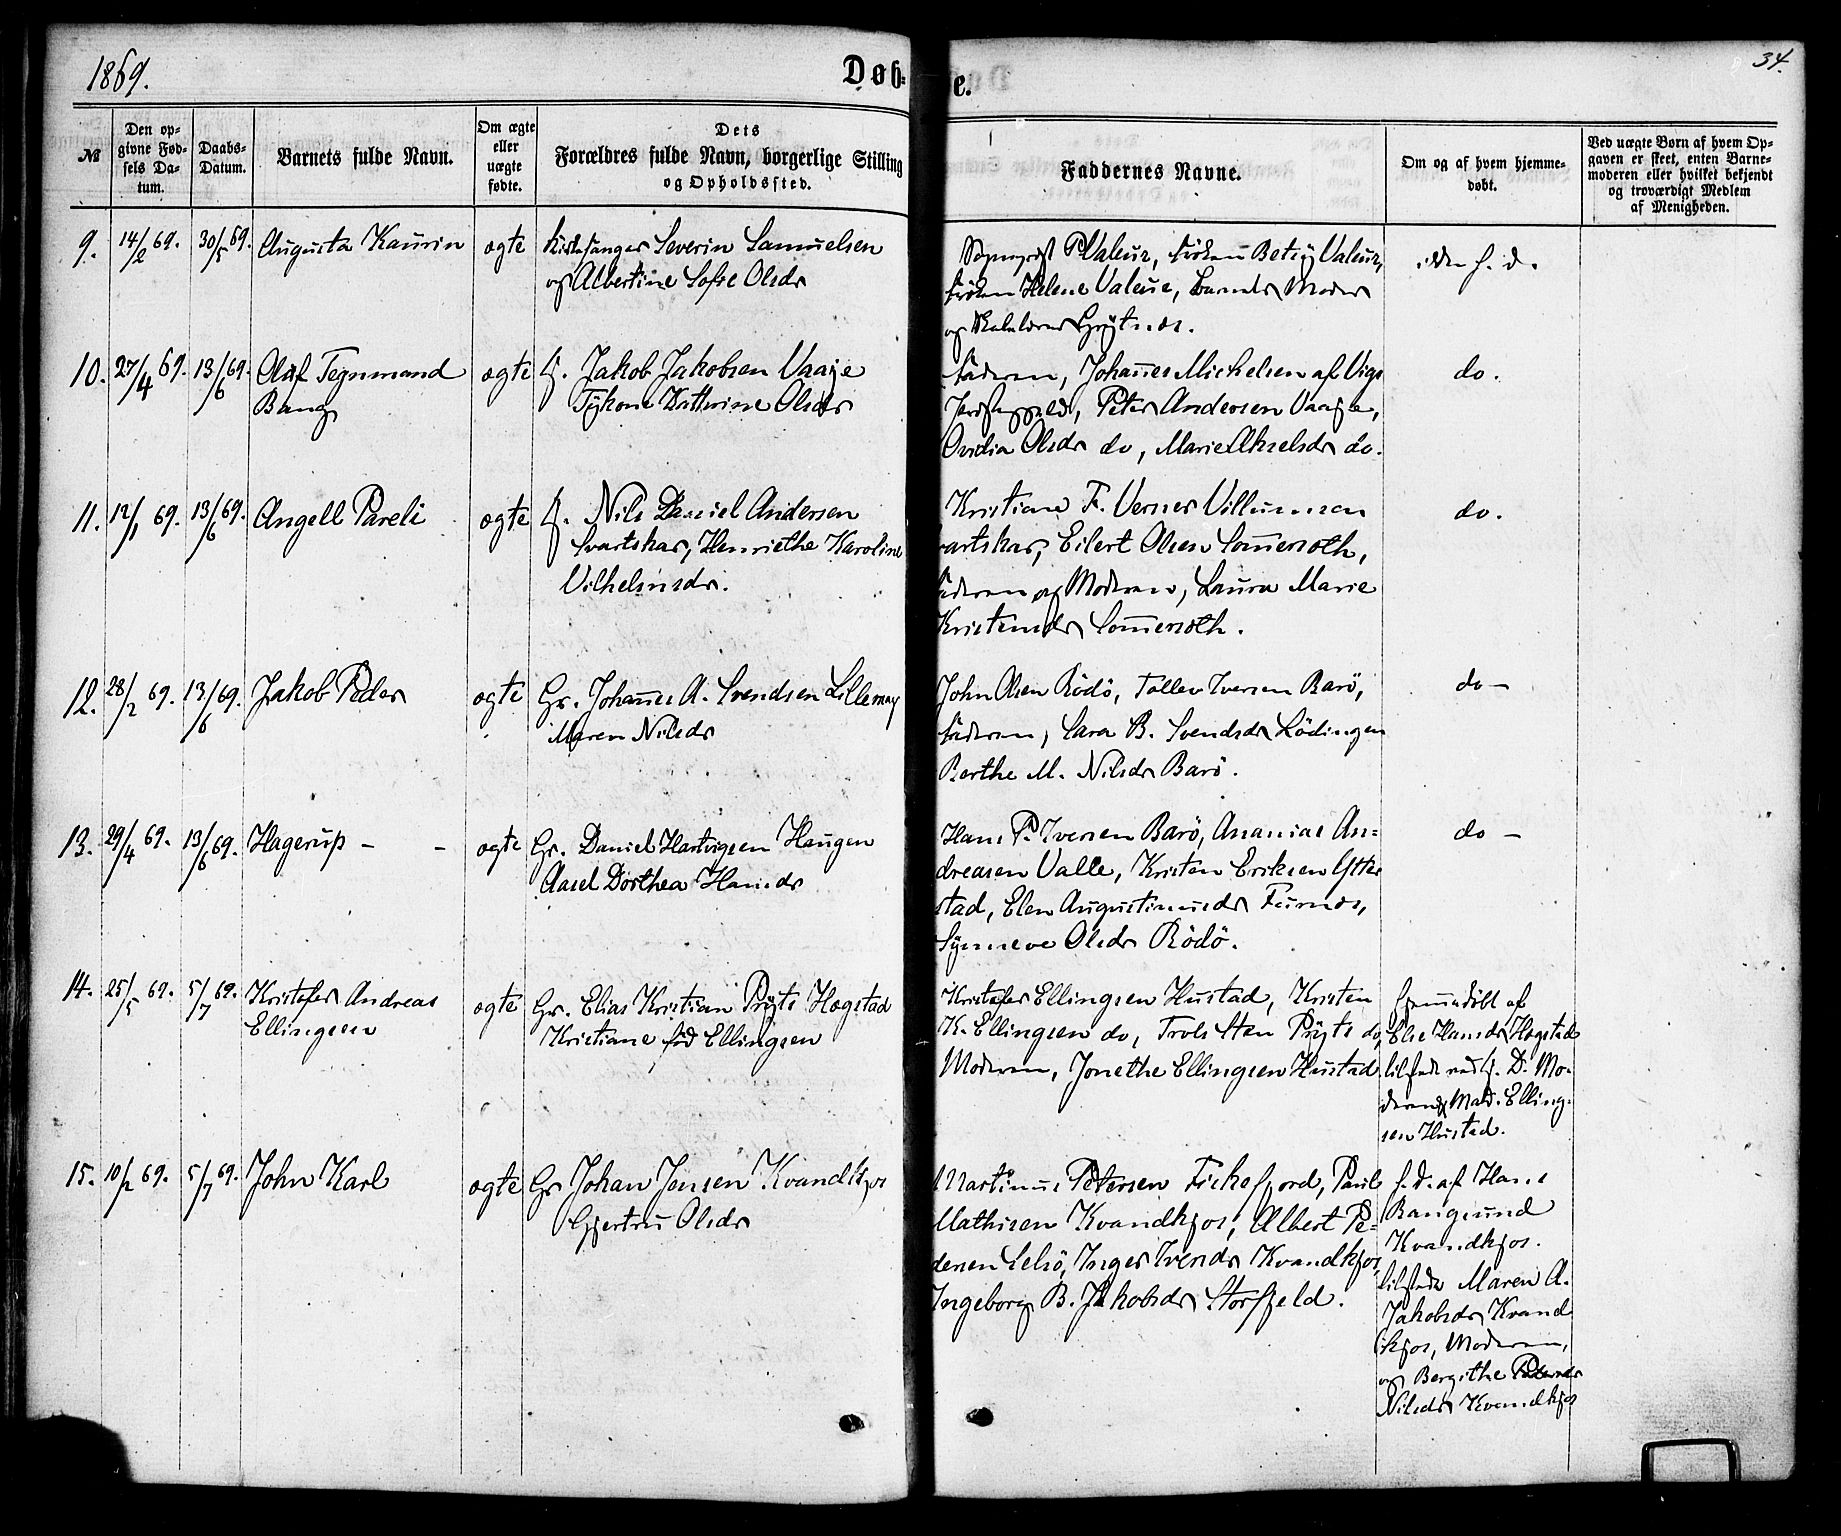 1869.
Døb-
e.
34.
№
Den op-
givne Fød-
sels Da-
tum.
Daabs-
Datum.
Barnets fulde Navn.
Om ægte
eller
uægte
fødte.
Dets
Forældres fulde Navn, borgerlige Stilling
og Opholdssted.
Faddernes Navne.
Om og af hvem hjemme-
døbt.
Ved uægte Børn af hvem Op-
gaven er skeet, enten Barne-
moderen eller hvilket bekjendt
og troværdigt Medlem
af Menigheden.
9. 14/2 69. 30/5 69. Augusta Kaurin ægte Kirkesanger Severin Samuelsen
og Albertine Sofie Olsdr
Sognepræst P. Valeur, frøken Betsy Valeur,
frøken Helene Valeur, Barnets Moder
og
ikke h. d.
10. 27/4 69. 13/6 69. Olaf Tegnmand
Bang
ægte G. Jakob Jakobsen Vaaje
Tykone Katherine Olsdr
faderen, Johannes Michelsen af
Peter Andersen Vaaje,
Ovidia Olsdr do, Marie Akselsdr do.
do.
11. 12/1 69. 13/6 69. Angell Pareli ægte G. Nils Daniel Andersen
Svartskar, Henriethe Karoline
Vilhelmsdr.
Kristiane F. Verner Villumsen
artskar, Eilert Olsen Sommersoth,
faderen og Moderen, Laura Marie
Kristensdr Sommersoth.
do.
12. 28/2 69. 13/6 69. Jakob Peder ægte Gr. Johannes A. Svendsen Lillemay
Maren Nilsdr
John Olsen Rödö, Tollev Iversen Barö,
faderen, Sara B. Svendsdr Lödingen
Berthe M. Nilsdr Barö.
do -
13. 29/4 69. 13/6 69. Hagerup - - ægte Gr. Daniel Hartvigsen Haugen
Aasel Dorthea Hansdr
Hans P. Iversen Barö, Ananias An=
dreasen Valle, Kristen Eriksen Ytter
stad, Elen Augustinusdr Furnes,
Synneve Olsdr Rödö.
do -
14. 25/5 69. 5/7 69. Kristofer Andreas
Ellingsen
ægte Gr. Elias Kristian Prÿts Hægstad
Kristiane fød Ellingsen
Kristofer Ellingsen Hustad, Kristen
K. Ellingsen do, Trols Sten Prÿts do,
Moderen, Jonethe Ellingsen Hustad
hjemmedöbt af
Else Hansdr Hægstad
tilstede ved hj. D. Mo-
deren og Mad. Elling-
sen Hustad.
15. 10/2 69. 5/7 69. John Karl ægte Gr Johan Jensen Kvandkjos
Gjertru Olsdr
Martinus Petersen Fiskefjord, Paul
Mathisen Kvandkjos, Albert Pe=
dersen Selsö, Inger Ivensdr Kvandkjos,
Ingeborg B. Jakobsdr Storfjeld.
h. d. af Hans
Bangsund
Kvandkjos.
tilstede Maren A.
Jakobsdr Kvand
kjos, Moderen,
og Bergithe
Nilsdr Kvandkjos